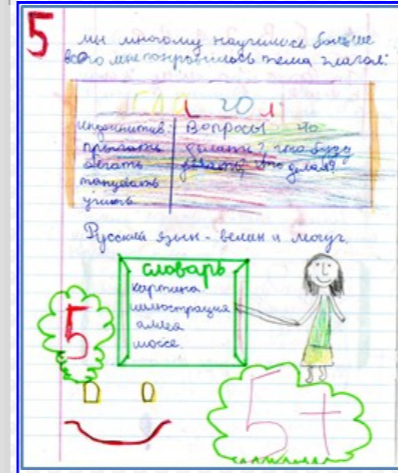 5
мы многому научились больше
всего мне понравилась тема глагол:
глагол
инфинитив: Вопросы что
прыгать делать? что буду
бегать делать? что делал?
танцевать
учить
Русский язык - велик и могуч.
словарь
картина
иллюстрация
аллея
шоссе
5
5+